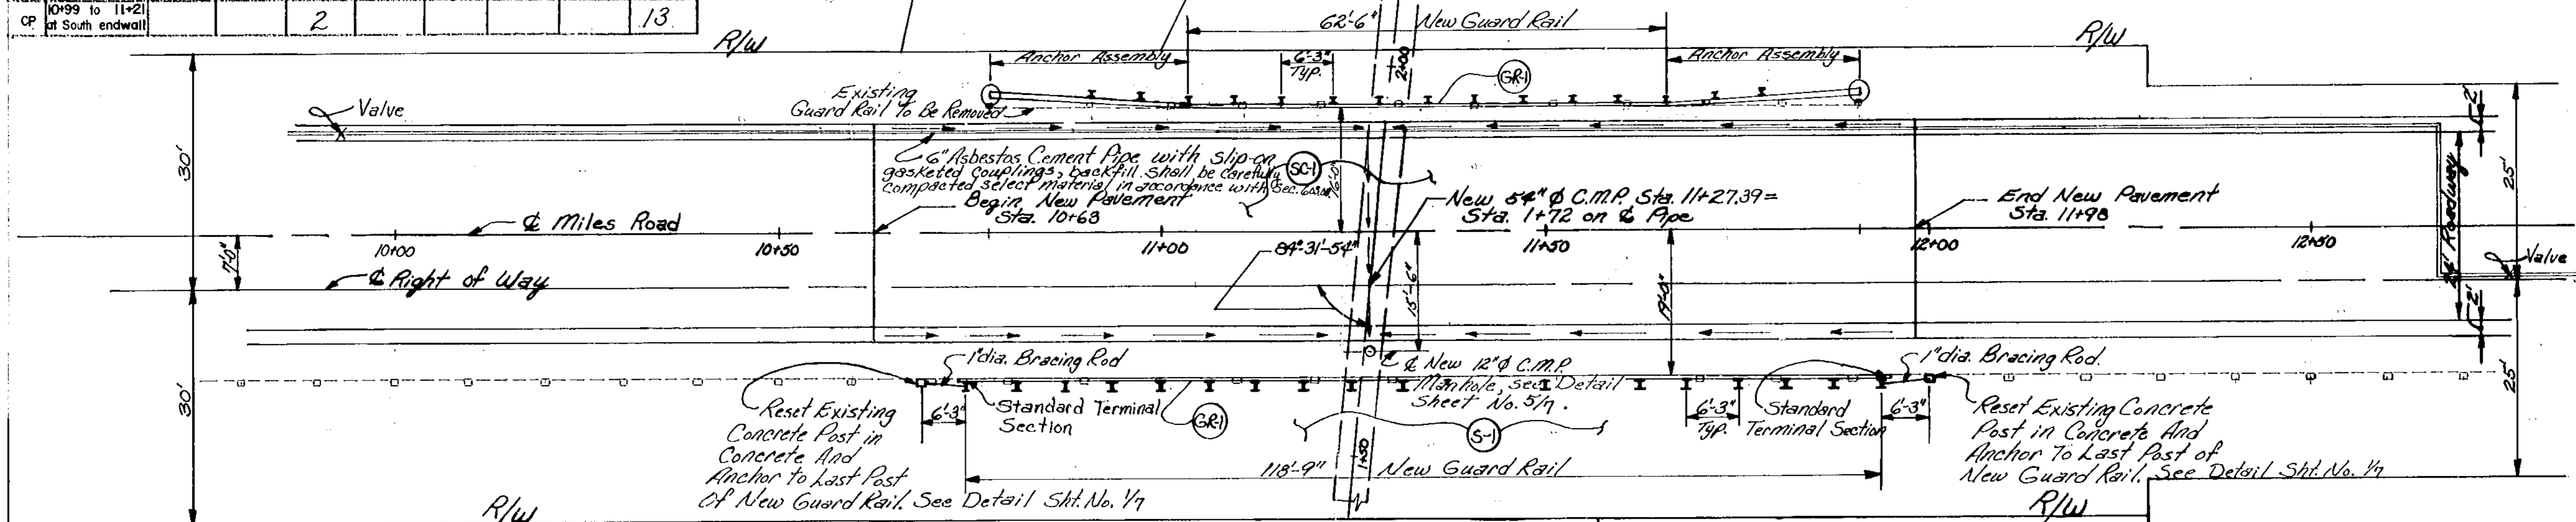 CP 10+99 to 11+21 2 13
at South endwall
R/W
62'-6" New Guard Rail
R/W
Anchor Assembly
6'-3"
Typ.
2+00
Anchor Assembly
GR-1
Existing
Guard Rail To Be Removed
Valve
2'
30'
6" Asbestos Cement Pipe with slip-on
gasketed couplings, backfill shall be carefully
compacted select material in accordance with Sec.
SC-1
16'-0"
25'
24' Roadway
Begin New Pavement
Sta. 10+63
New 54" φ C.M.P. Sta. 11+27.39=
Sta. 1+72 on ℄ Pipe
End New Pavement
Sta. 11+98
℄ Miles Road
10+00
10+50
11+00
11+50
12+00
12+50
84°-31'-54"
7'-0"
℄ Right of Way
15'-6"
19'-0"
Valve
2'
30'
25'
1" dia. Bracing Rod
℄ New 12" φ C.M.P.
Manhole, see Detail
Sheet No. 5/7.
1" dia. Bracing Rod.
Reset Existing
Concrete Post in
Concrete And
Anchor To Last Post
Of New Guard Rail. See Detail Sht. No. 1/7
6'-3"
Standard Terminal
Section
GR-1
S-1
6'-3"
Typ.
Standard
Terminal Section
6'-3"
Reset Existing Concrete
Post in Concrete And
Anchor To Last Post of
New Guard Rail. See Detail Sht. No. 1/7
118'-9" New Guard Rail
1+50
R/W
R/W